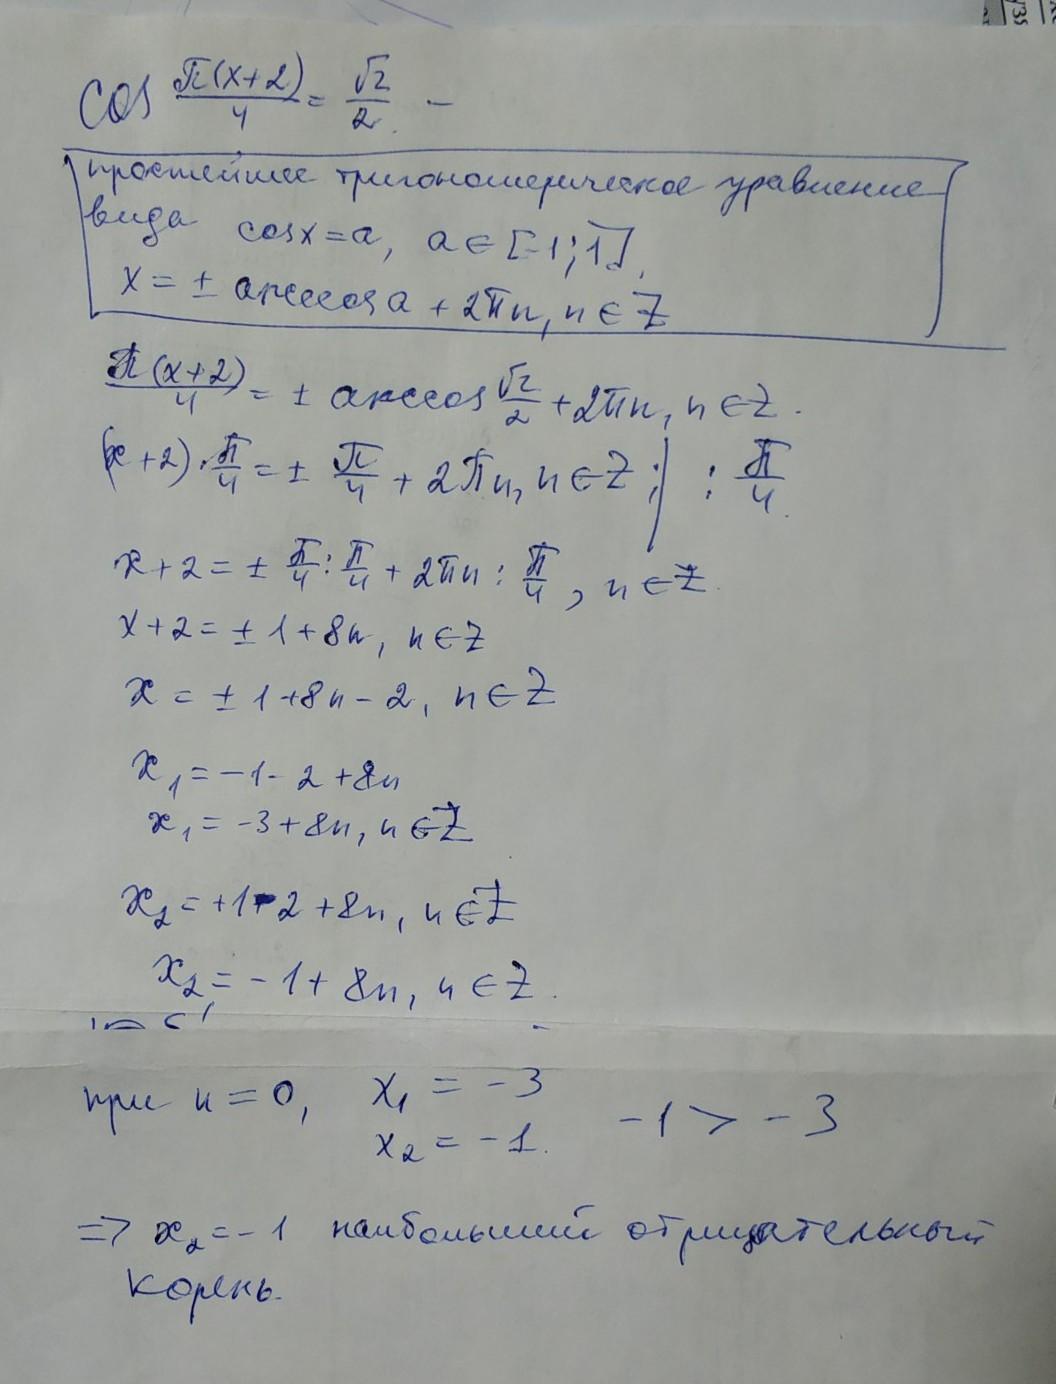 cos π(x+2)/4 = √2/2 –
простейшее тригонометрическое уравнение
вида cosx=a, a∈[-1;1],
x = ± arccos a + 2πn, n∈Z
π(x+2)/4 = ± arccos √2/2 + 2πn, n∈Z.
(x+2)·π/4 = ± π/4 + 2πn, n∈Z; | : π/4
x+2 = ± π/4 : π/4 + 2πn : π/4, n∈Z.
x+2 = ± 1+8n, n∈Z
x = ± 1+8n-2, n∈Z
x₁ = -1-2+8n
x₁ = -3+8n, n∈Z
x₂ = +1-2+8n, n∈Z
x₂ = -1+8n, n∈Z.
при n=0, x₁ = -3
x₂ = -1. -1 > -3
=> x₂=-1 наибольший отрицательный
корень.